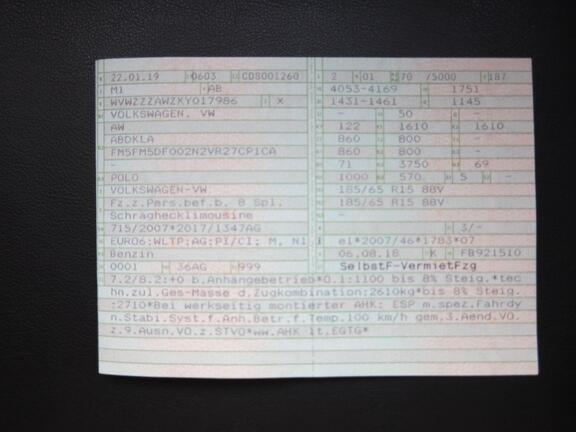 22.01.19 0603 CDS001260 2 01 70 /5000 187
M1 AB 4053-4169 1751
WVWZZZAWZKY017986 X 1431-1461 1145
VOLKSWAGEN, VW - 50 -
AW 122 1610 1610
ABDKLA 860 800 -
FM5FM5DF002N2VR27CP1CA 860 800 -
- 71 3750 69
POLO 1000 570 5 -
VOLKSWAGEN-VW 185/65 R15 88V
Fz.z.Pers.bef.b. 8 Spl. 185/65 R15 88V
Schräghecklimousine -
715/2007*2017/1347AG 4 3/-
EURO6;WLTP;AG;PI/CI; M, N1 I e1*2007/46*1783*07
Benzin 06.08.18 K FB921510
0001 36AG 999 SelbstF-VermietFzg
7.2/8.2:+0 b.Anhängebetrieb*O.1:1100 bis 8% Steig.*tec
hn.zul.Ges-Masse d.Zugkombination:2610kg*bis 8% Steig.
:2710*Bei werkseitig montierter AHK: ESP m.spez.Fahrdy
n.Stabi.Syst.f.Anh.Betr.f.Temp.100 km/h gem.3.Aend.VO.
z.9.Ausn.VO.z.STVO*ww.AHK lt.EGTG*